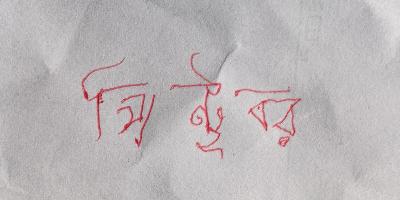 মিন্টু বর